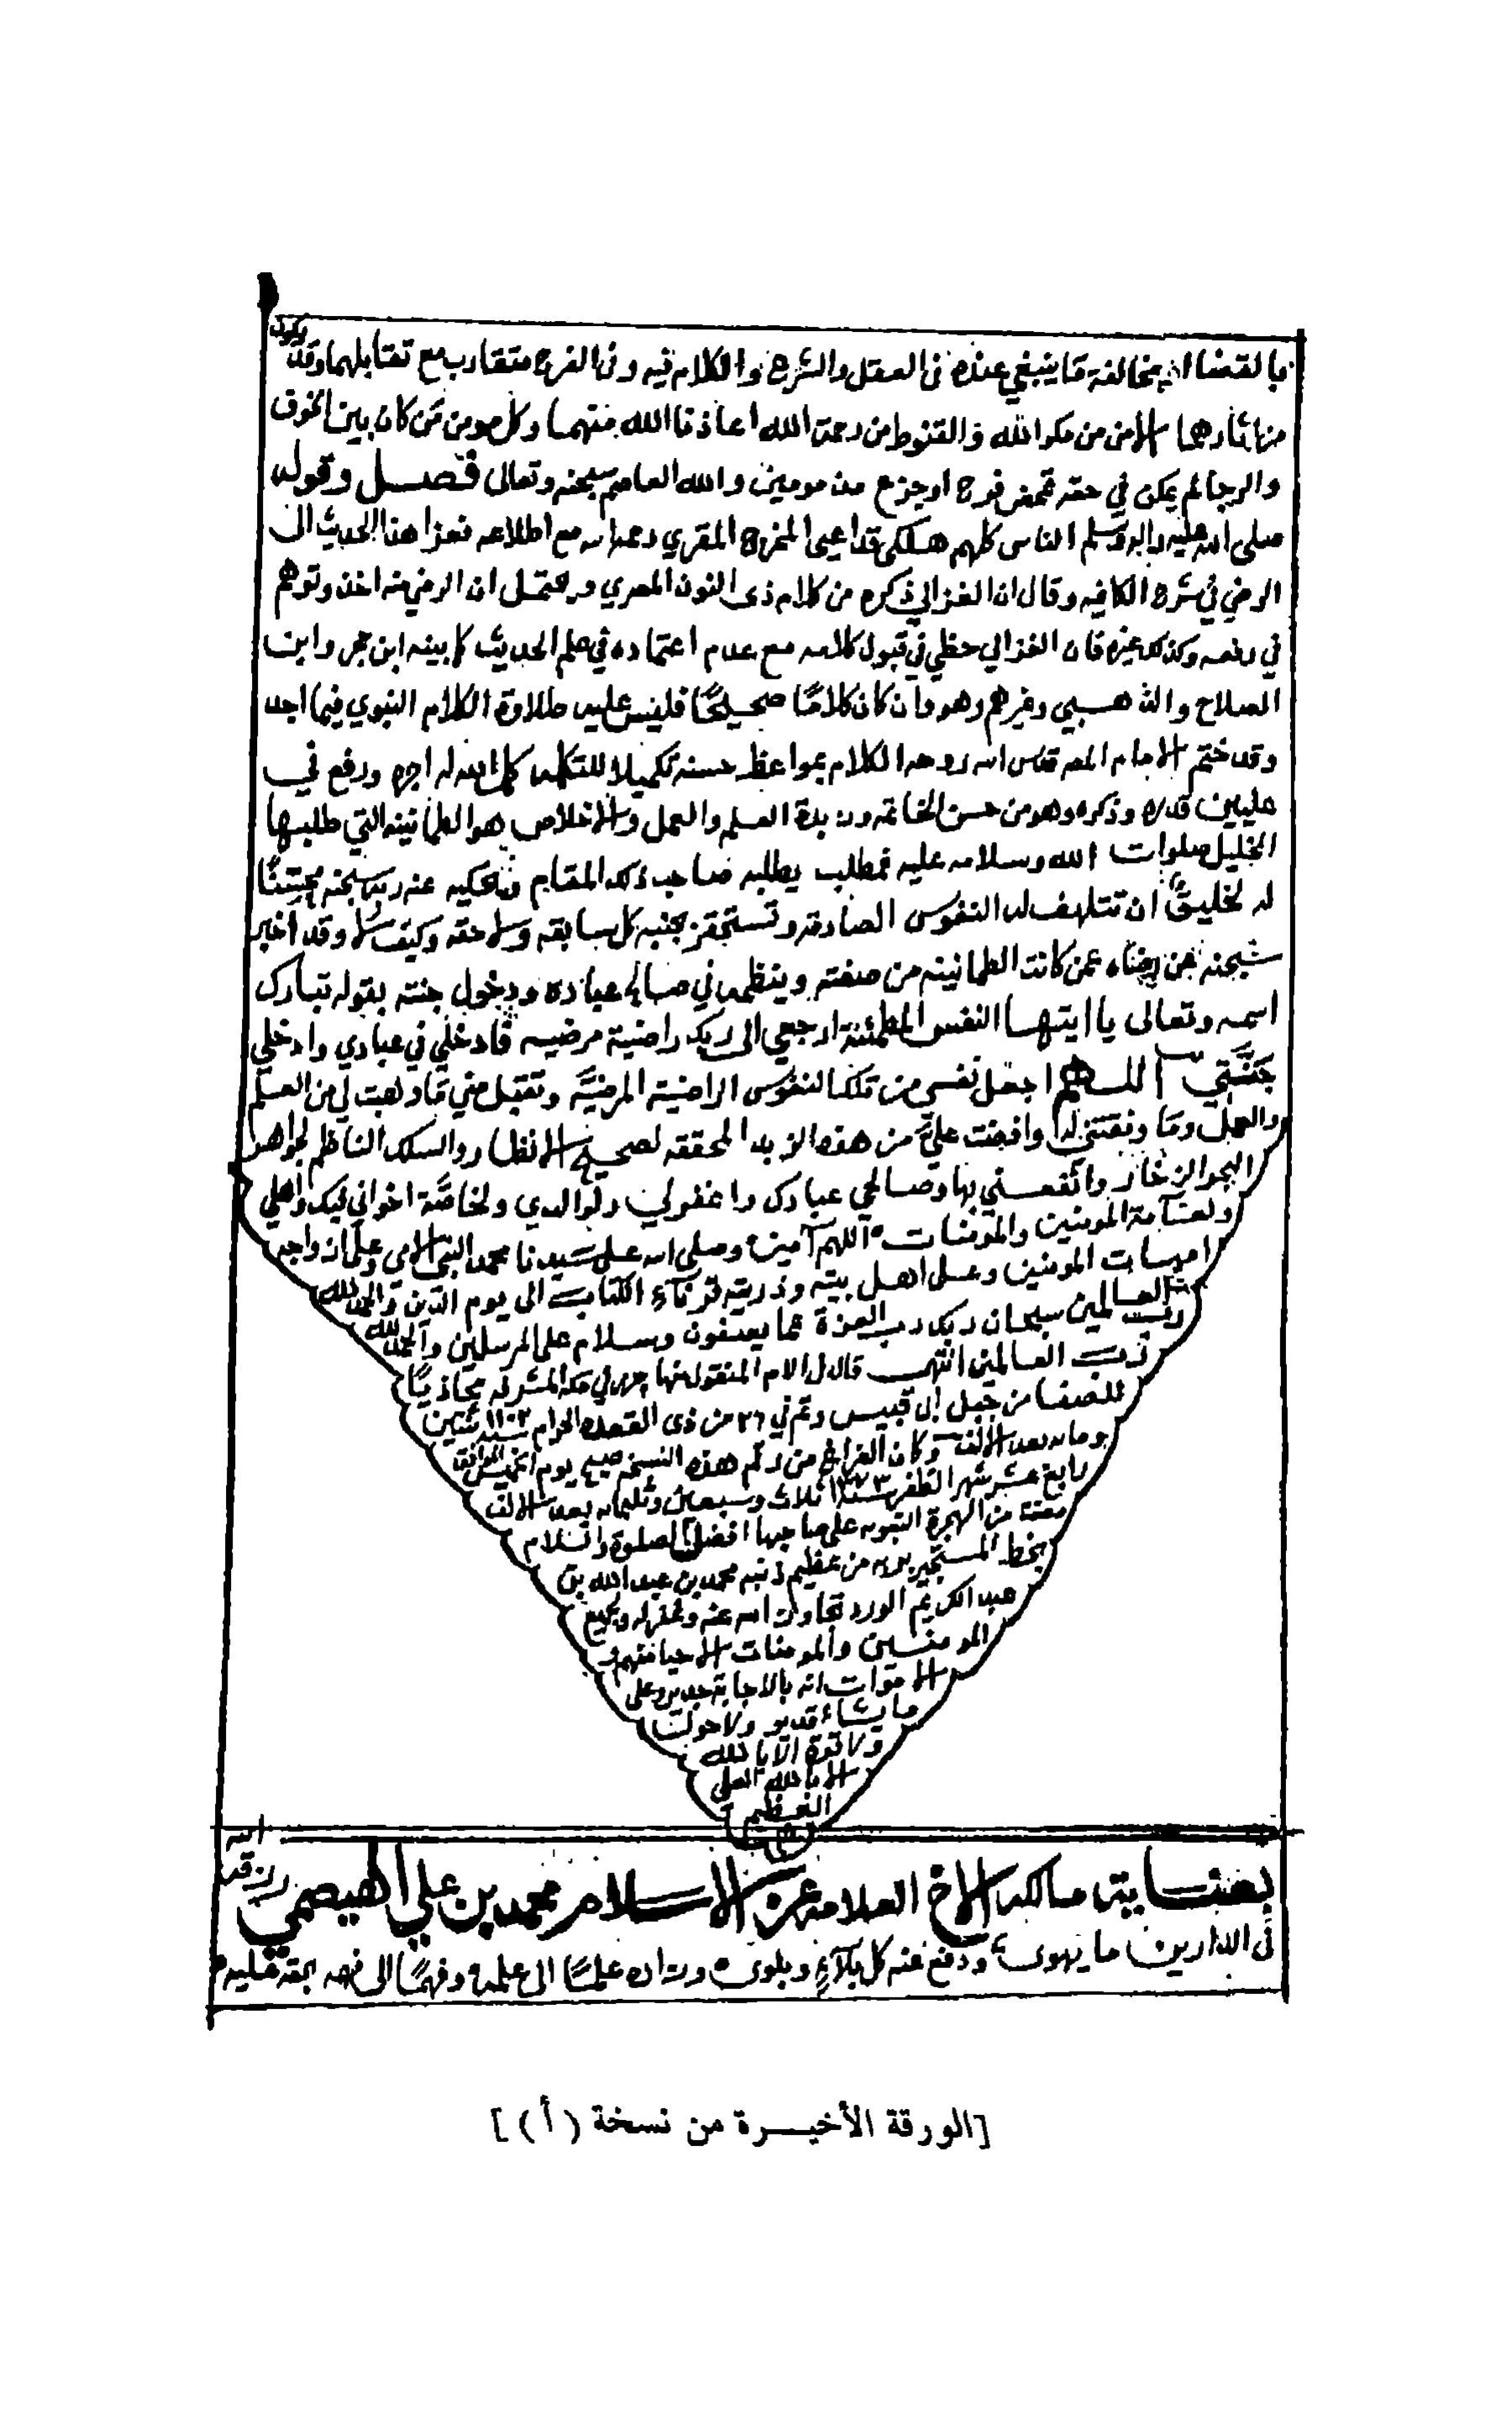 بالقضا مخالفة ما ينبغي عنده في العقل والشرع والكلام فيه وفي الفرح متقارب مع تقابلهما وقد يكون
من اثارهما الامن من مكر الله والقنوط من رحمة الله اعاذنا الله منهما وكل مومن ممن كان بين الخوف
والرجا لم يمكن في حقه تمحض فرح او جزع من مومين والله العاصم سبحنه وتعالى فصل وقوله
صلى الله عليه واله وسلم الناس كلهم هلكى قد اعيى المخرج المقري رحمه الله مع اطلاعه فعزا هذا الحديث الى
الرضي في شرح الكافيه وقال ان الغزالي ذكره من كلام ذي النون المصري ويحتمل ان الرضي منه اخذ وتوهم
في رفعه وكذلك غيره فان الغزالي حظي في قبول كلامه مع عدم اعتماده في علم الحديث كما بينه ابن حجر وابن
الصلاح والذهبي وغيرهم وهو وان كان كلامًا صحيحًا فليس عليه طلاوة الكلام النبوي فيما اجد
وقد ختم الامام المص قدس الله روحه الكلام بمواعظ حسنه تكميلا للتكلمه كمل الله له اجره ورفع في
عليين قدره وذكره وهو من حسن الخاتمه وزبدة العلم والعمل والاخلاص هو الطمانينه التي طلبها
الخليل صلوات الله وسلامه عليه فمطلب يطلبه صاحب ذلك المقام ويحكيه عنه ربه سبحنه مجتبيًا
له لخليق ان تتلهف له النفوس الصادقه وتستحقر بجنبه كل سابقه ولاحقه وكيف لا وقد اخبر
سبحنه عن رضاه عمن كانت الطمانينه من صفته وينظمه في صالح عباده ودخول جنته بقوله تبارك
اسمه وتعالى يا ايتها النفس المطمئنة ارجعي الى ربك راضية مرضيه فادخلي في عبادي وادخلي
جنتي اللهم اجعل نفسي من تلك النفوس الراضية المرضيه وتقبل مني ما وهبت لي من العلم
والعمل وما وفقتني له وافضت علي من هذه الزبدا لمحققه لصحيح الانظار والسلك الناظم لجواهر
البحر الزخار وانفعني بها وصالحي عبادك واغفر لي ولوالدي ولخاصة اخواني فيك واهلي
ولعامة المومنين والمومنات اللهم آمين وصلى الله على سيدنا محمد النبي الامي وعلى ازواجه
امهات المومنين وعلى اهل بيته وذريته قرناء الكتاب الى يوم الدين والحمد لله
رب العالمين سبحان ربك رب العزة عما يصفون وسلام على المرسلين والحمد لله
رب العالمين انتهى قال في الام المنقول منها حرر في مكه المشرفه محاذيًا
للصفا من جبل ابي قبيس وتم في ٢٦ من ذي القعده الحرام سنة ١١٠٢ ثنتين
وماىه بعد الالف وكان الفراغ من رقم هذه النسخه صبح يوم الخميس الموافق
رابع عشر شهر الظفر سنة ١٣٧٣ ثلاث وسبعين وثلثمايه بعد الالف
مضت من الهجرة النبويه على صاحبها افضل الصلوة والسلام
بخط المستجير بربه من عظيم ذنبه محمد بن عبد الله بن
عبد الكريم الورد تجاوز الله عنه وغفر له ولجميع
المومنين والمومنات الاحيا منهم و
الاموات انه بالاجابة جدير وعلى
ما يشاء قدير ولا حول
ولا قوة الا بالله
الا بالله العلي
العظيم
بعناية مالكه الاخ العلامه عز الاسلام محمد بن علي الهيصمي رزقه الله
في الدارين ما يهوى ودفع عنه كل بلآءٍ وبلوى وزاده علمًا الى علمه وفهمًا الى فهمه بحقه عليه
[الورقة الأخيرة من نسخة (أ)]